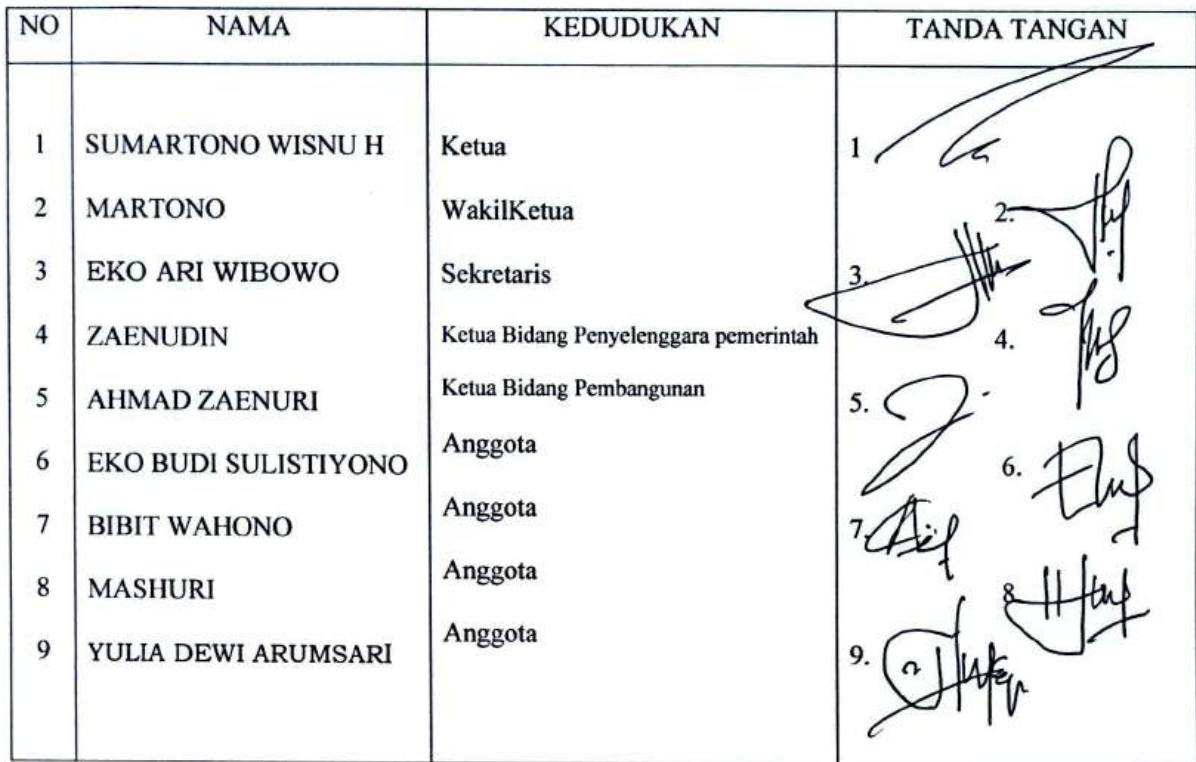 NO NAMA KEDUDUKAN TANDA TANGAN
1 SUMARTONO WISNU H Ketua 1
2 MARTONO WakilKetua 2.
3 EKO ARI WIBOWO Sekretaris 3.
4 ZAENUDIN Ketua Bidang Penyelenggara pemerintah 4.
5 AHMAD ZAENURI Ketua Bidang Pembangunan 5.
6 EKO BUDI SULISTIYONO Anggota 6.
7 BIBIT WAHONO Anggota 7.
8 MASHURI Anggota 8
9 YULIA DEWI ARUMSARI Anggota 9.